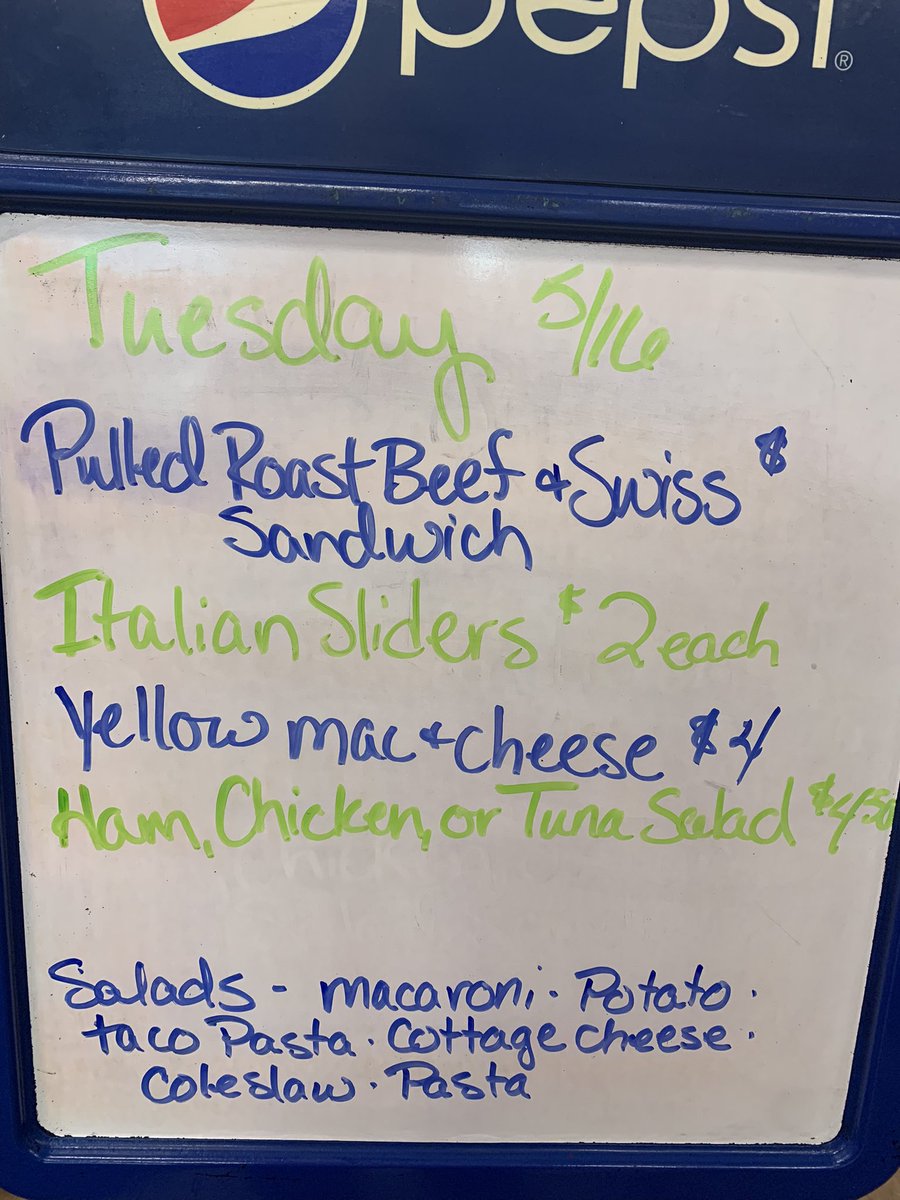 pepsi®
Tuesday 5/16
Pulled Roast Beef & Swiss $
Sandwich
Italian Sliders $2 each
Yellow mac & cheese $4
Ham, Chicken, or Tuna Salad $4.50
Salads - macaroni · Potato ·
taco Pasta · Cottage cheese ·
Coleslaw · Pasta